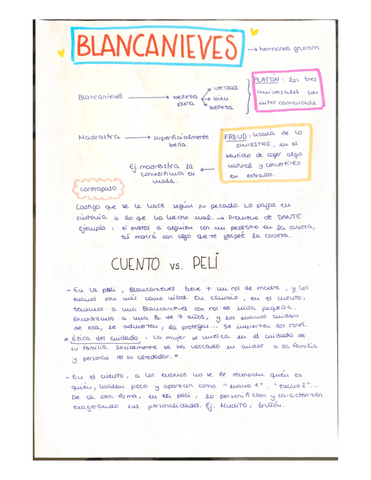 BLANCANIEVES → hermanos grimm
Blancanieves → belleza pura → verdad
bien
belleza
PLATÓN: los tres
universales son
intercambiable
Madrastra → superficialmente
bella
FREUD: habla de lo
SINIESTRO, en el
sentido de coger algo
natural y convertirlo
en extraño.
Ej madrastra la
mala.
contrapaso
Castigo que se le hace según su pecado. Lo pagas en
sintonía a lo que has hecho mal. → Proviene de DANTE
Ejemplo: si matas a alguien con un pedrete en la cabeza,
tú morirá con algo que te golpeé la cabeza.
CUENTO vs. PELI
- En la peli, Blancanieves tiene + un rol de madre, y los
enanos son más como niños. En cambio, en el cuento,
tenemos a una Blancanieves con rol de niña pequeña.
Encontramos a una de 7 años, y los enanos cuidan
de esa, le advierten, la protegen... Se invierten los roles.
* Ética del cuidado: La mujer se vuelca en el cuidado de
su familia. Socialmente se ha volcado en cuidar a la familia
y personas de su alrededor. *
- En el cuento, a los enanos no se le reconoce quién es
quién, hablan poco y aparecen como "enano 1", "enano 2"...
De la otra forma, en la peli, lo personifican y caracterizan
exagerando sus personalidades. Ej. Mudito, Gruñón.